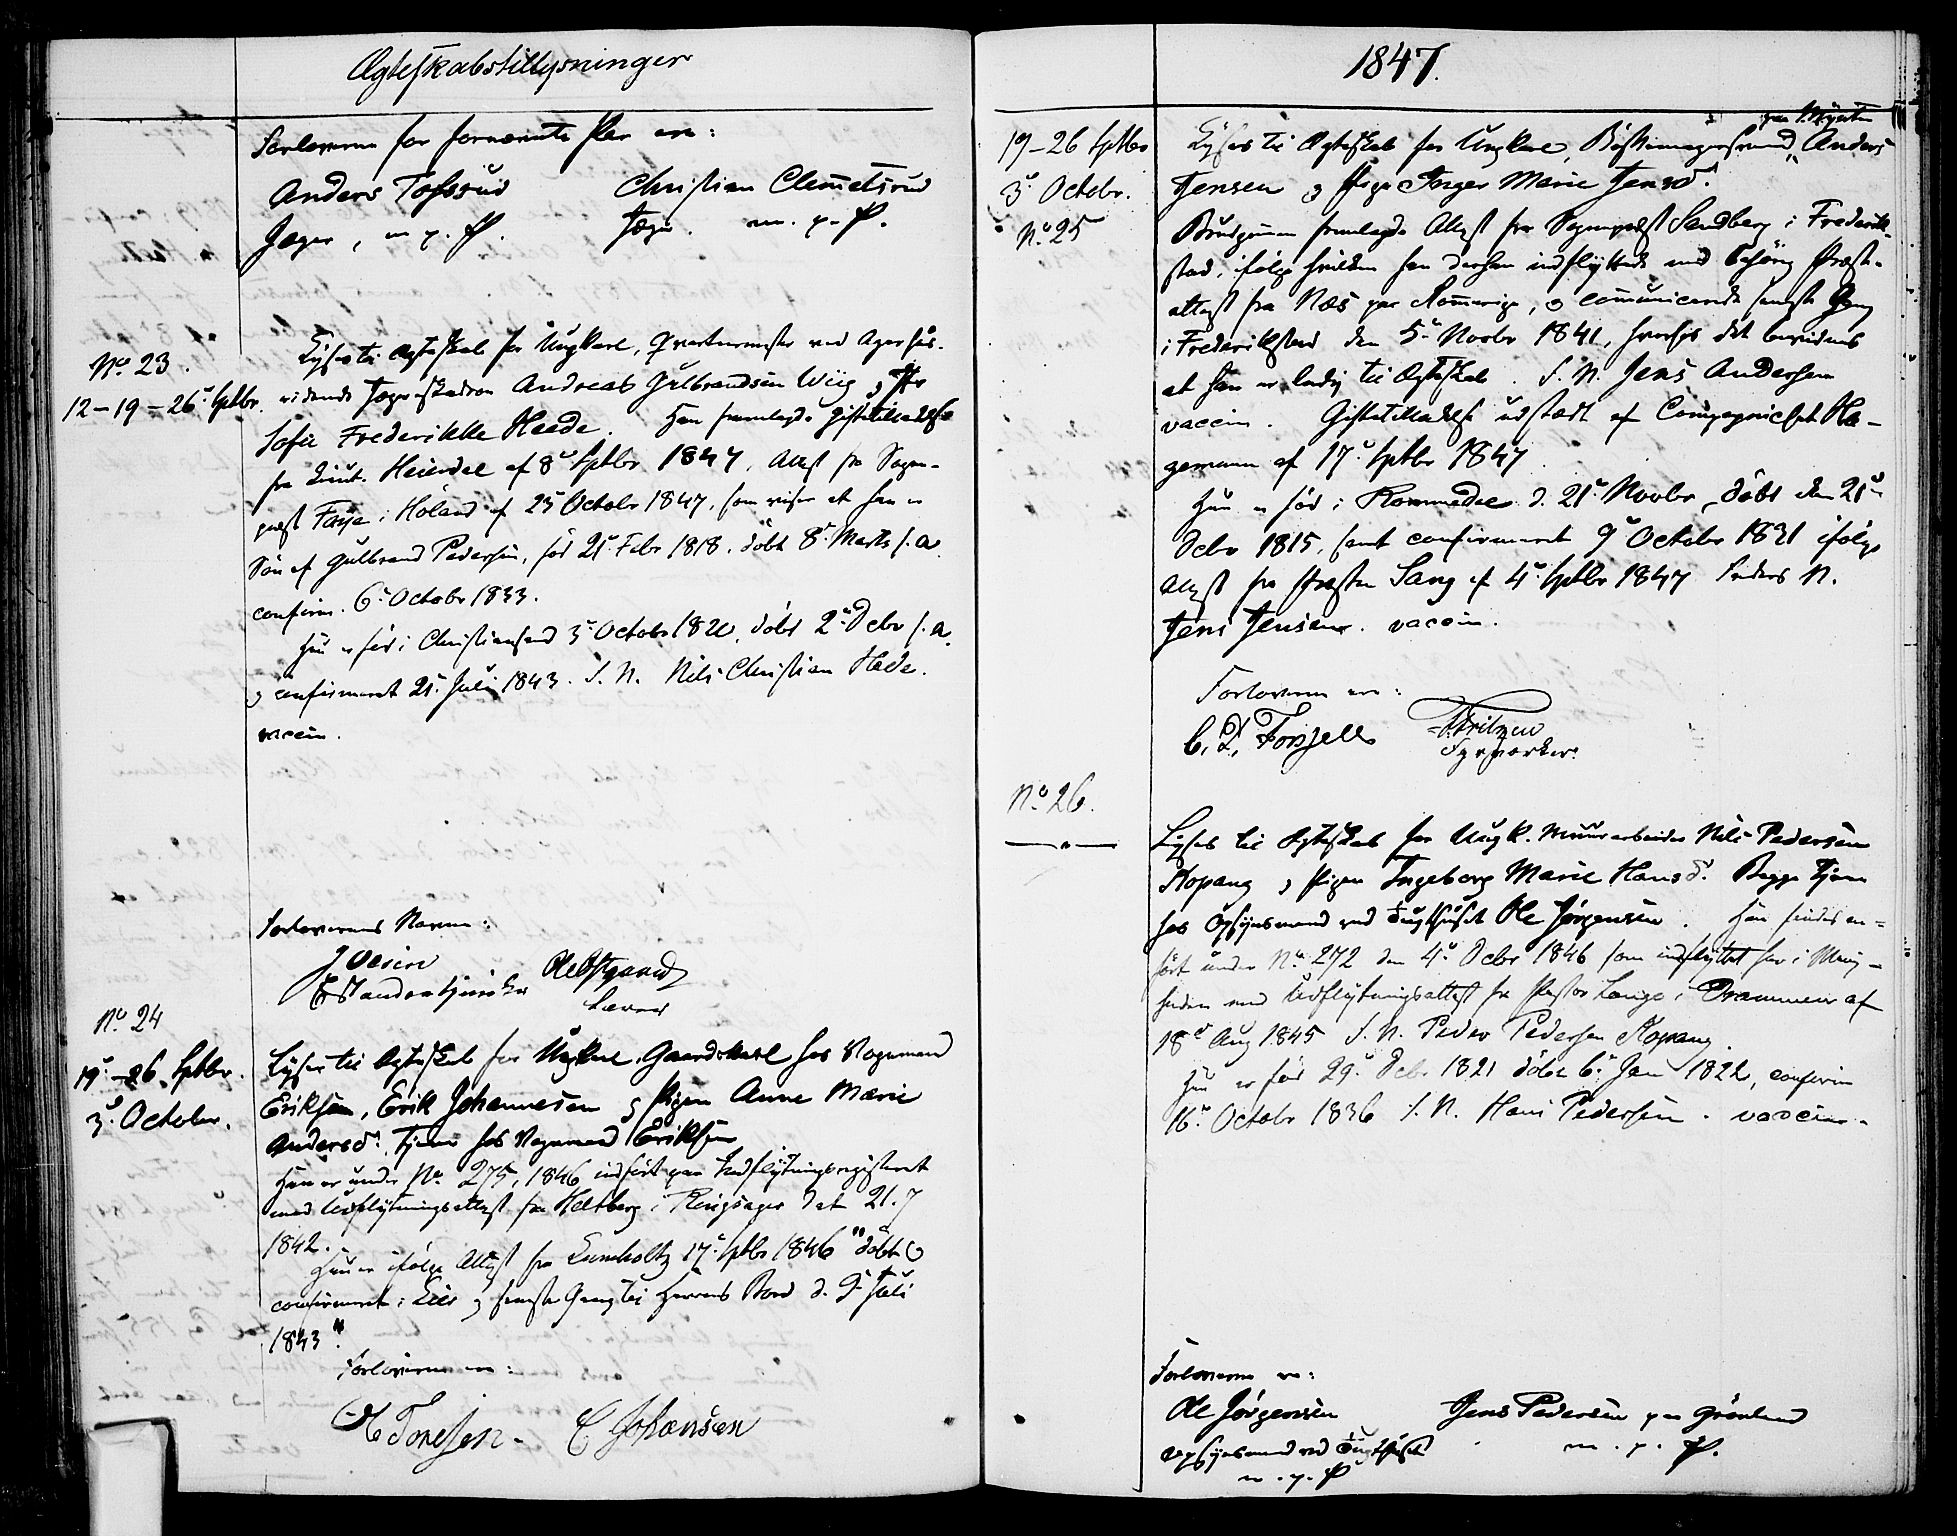 Ægteskabstillysninger
Forloverne for fornævnte Par ere:
Anders Tofsrud Christian Clemetsrud
Jæger, m. p. P. Jæger. m. p. P.
No. 23.
12-19-26 Septbr.
Lyses til Ægteskab for Ungkarl, Qvarteermester ved Agershus-
ridende Jægereskadron Andreas Gulbrandsen Wiig og
Sofie Frederikke Heede. Han fremlagde Giftetilladelse
fra Lieut. Heierdal af 8de Septbr 1847, Attest fra Sogne-
præst Faye i Höland af 23 Octobr 1847, som viser at han er
Sön af Gulbrand Pedersen, föd 21 Febr 1818, döbt 8de Marts s. a.
confirm. 6te Octobr 1833.
Hun er föd i Christiansand 3 Octobr 1820, döbt 2den Debr s. a.
og confirmeret 21 Juli 1843. F. N. Nils Christian Hede.
vaccin.
Forlovernes Navne:
J Olsen Ole Ostgaard
Lærer
No. 24
19-26 Septbr.
3 October.
Lyses til Ægteskab for Ungkarl, Gaardskarl hos Vognmand
Eriksen, Erik Johannesen og Pigen Anne Marie
Andersd. tjener hos Vognmand Eriksen
Han er under No. 275, 1846 indfört paa Indflytningsregisteret
med Udflytningsattest fra Heltberg i Ringsager dat 21.7
1842.
Hun er ifölge Attest fra Lumholtz 17de Septbr 1846 "döbt og
confirmeret i Eids og seneste Gang til Herrens Bord d. 9 Juli
1843".
Forloverne ere:
O Tonesen. C Johansen
1847.
19-26 Septbr
3 Octobr.
No. 25
paa Myrten
Lyses til Ægteskab for Ungkarl, Bösemagersvend, Anders
Jensen og Pige Inger Marie Jensd.
Brudgommen fremlagde Attest fra Sognepræst Sandberg i Frederik-
stad, ifölge hvilken han dertil indflyttede med behörig Præste-
attest fra Næs paa Romerige, og communicerede seneste Gang
i Frederikstad den 5te Novbr 1841, hvorhos det bevidnes
at han er ledig til Ægteskab. F. N. Jens Andersen
vaccin. Giftetilladelse udstædt af Compagniechef Ha-
gemann af 17de Septbr 1847.
Hun er föd i Rommedal d. 21 Novbr, döbt den 21de
Debr 1815, samt confirmeret 9 Octobr 1831 ifölge
Attest fra Præsten Lang af 4de Septbr 1847 Faders N.
Jens Jensen. vaccin.
Forloverne ere:
C. L. Forssell Fritzen
Fyrverker.
No. 26.
— " —
Lyses til Ægteskab for Ungk. Muurarbeider Nils Pedersen
Kopang og Pigen Ingeborg Marie Hansd. Begge tjene
hos Opsynsmand ved Tugthuset Ole Jörgensen. Han findes an-
fört under No. 272 den 4de Debr 1846 som indflyttet her i Menig-
heden med Udflytningsattest fra Pastor Lange i Drammen af
18de Aug 1845 F. N. Peder Pedersen Kopang.
Hun er föd 29 Debr 1821 döbt 6te Jan 1822, confirm
16de Octobr 1836 F. N. Hans Pedersen. vaccin.
Forloverne ere:
Ole Jörgensen Jens Pedersen paa Grönland
Opsynsmand ved Tugthuset m. p. P.
m. p. P